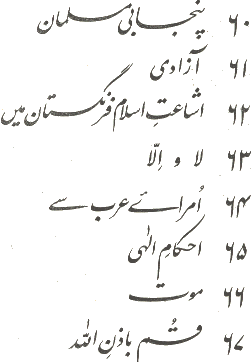 ۶۰ پنجابی مسلمان
۶۱ آزادی
۶۲ اشاعتِ اسلام فرنگستان میں
۶۳ لا و اِلّا
۶۴ اُمرائے عرب سے
۶۵ احکامِ الٰہی
۶۶ موت
۶۷ قُم باذنِ اللہ